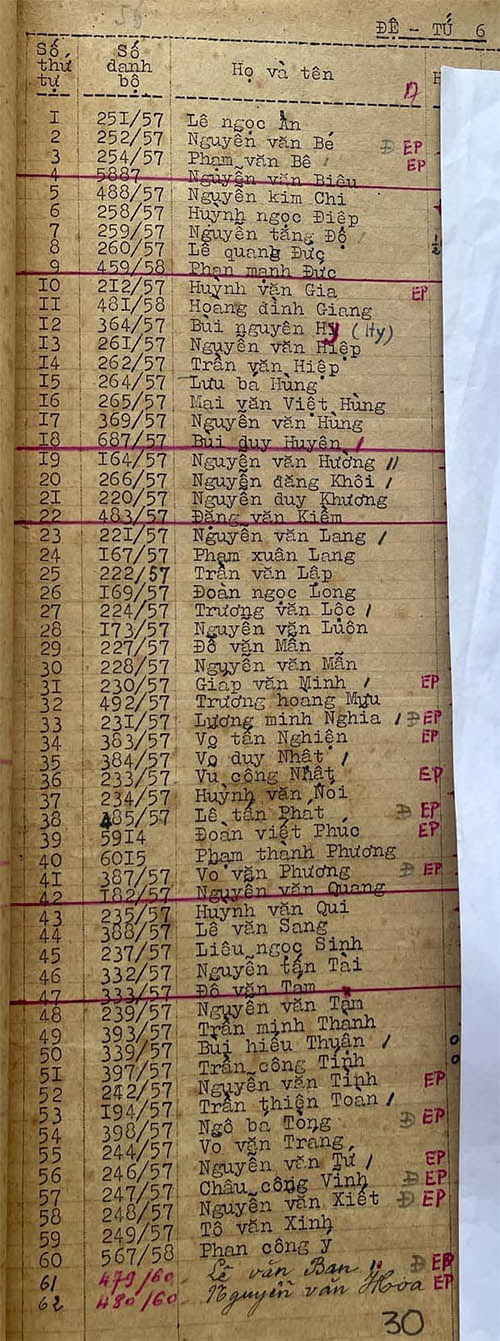 ĐÊ - TỨ 6
Số thứ tự Số danh bộ Họ và tên
1 251/57 Lê ngọc Ẩn
2 252/57 Nguyễn văn Bé Đ EP
3 254/57 Phạm văn Bê EP
4 5887 Nguyễn văn Biểu
5 488/57 Nguyễn kim Chi
6 258/57 Huỳnh ngọc Điệp
7 259/57 Nguyễn tấng Độ
8 260/57 Lê quang Đức
9 459/58 Phan mạnh Đức
10 212/57 Huỳnh văn Gia EP
11 481/58 Hoàng đình Giang
12 364/57 Bùi nguyên Hy (Hy)
13 261/57 Nguyễn văn Hiệp
14 262/57 Trần văn Hiệp
15 264/57 Lưu bá Hùng
16 265/57 Mai văn Việt Hùng
17 369/57 Nguyễn văn Hùng
18 687/57 Bùi duy Huyên /
19 164/57 Nguyễn văn Hường //
20 266/57 Nguyễn đăng Khôi /
21 220/57 Nguyễn duy Khương
22 483/57 Đặng văn Kiếm
23 221/57 Nguyễn văn Lang /
24 167/57 Phạm xuân Lang
25 222/57 Trần văn Lập
26 169/57 Đoàn ngọc Long
27 224/57 Trương văn Lộc /
28 173/57 Nguyễn văn Luôn
29 227/57 Đỗ văn Mẫn
30 228/57 Nguyễn văn Mẫn
31 230/57 Giáp văn Minh / EP
32 492/57 Trương hoàng Mưu
33 231/57 Lương minh Nghĩa / Đ EP
34 383/57 Võ tấn Nghiện EP
35 384/57 Võ duy Nhất /
36 233/57 Vũ công Nhất EP
37 234/57 Huỳnh văn Nói
38 485/57 Lê tấn Phát Đ EP
39 5914 Đoàn viết Phúc EP
40 6015 Phạm thành Phương
41 387/57 Võ văn Phương Đ EP
42 182/57 Nguyễn văn Quang
43 235/57 Huỳnh văn Qui
44 388/57 Lê văn Sang
45 237/57 Liêu ngọc Sinh
46 332/57 Nguyễn tấn Tài
47 333/57 Đỗ văn Tám
48 239/57 Nguyễn văn Tám
49 393/57 Trần minh Thành
50 339/57 Bùi hiếu Thuận /
51 397/57 Trần công Tỉnh
52 242/57 Nguyễn văn Tỉnh EP
53 194/57 Trần thiện Toàn /
54 398/57 Ngô bá Tòng Đ EP
55 244/57 Võ văn Trang
56 246/57 Nguyễn văn Tư / EP
57 247/57 Châu công Vinh Đ EP
58 248/57 Nguyễn văn Xiết Đ EP
59 249/57 Tô văn Xinh
60 567/58 Phan công Ý
61 479/60 - Lê văn Ban Đ EP
62 480/60 - Nguyễn văn Hòa EP
30